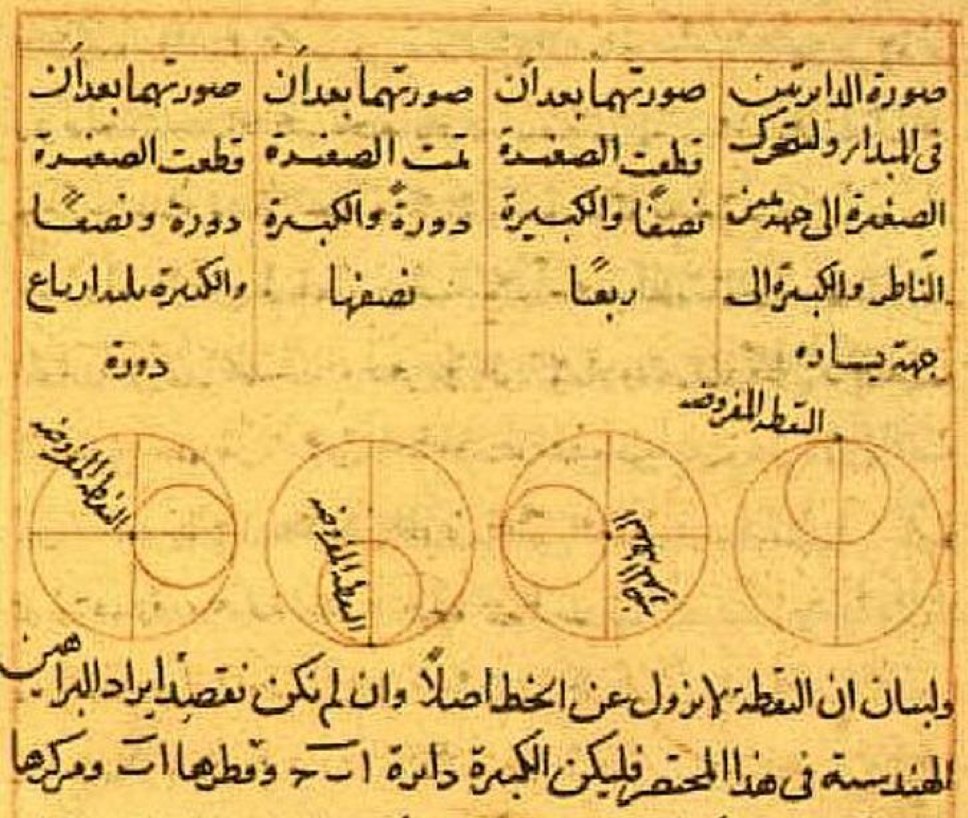 صورة الدائرتين
في المبدأ ولتتحرك
الصغيرة الى جهة يمين
الناظر والكبيرة الى
جهة يساره
صورتهما بعد أن
قطعت الصغيرة
نصفًا والكبيرة
ربعًا
صورتهما بعد أن
تمت الصغيرة
دورةً والكبيرة
نصفها
صورتهما بعد أن
قطعت الصغيرة
دورة ونصفًا
والكبيرة ثلثة ارباع
دورة
النقطة المفروضة
النقطة المفروضة
النقطة المفروضة
النقطة المفروضة
ولبيان ان النقطة لا تزول عن الخط اصلًا وان لم نكن نقصد ايراد البراهين
الهندسية في هذا المختصر فليكن الكبيرة دائرة ا ب ح وقطرها ا ب ومركزها